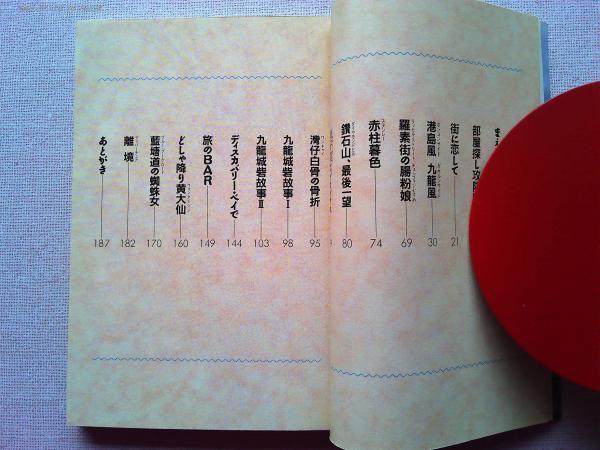 まえ
部屋探し攻防
街に恋して 21
港島風 九龍風 30
羅素街の腸粉娘 69
赤柱暮色 74
鑽石山、最後一望 80
灣仔白骨の骨折 95
九龍城砦故事Ⅰ 98
九龍城砦故事Ⅱ 103
ディスカバリー・ベイで 144
旅のBAR 149
どしゃ降り黄大仙 160
藍塘道の蜘蛛女 170
離境 182
あとがき 187